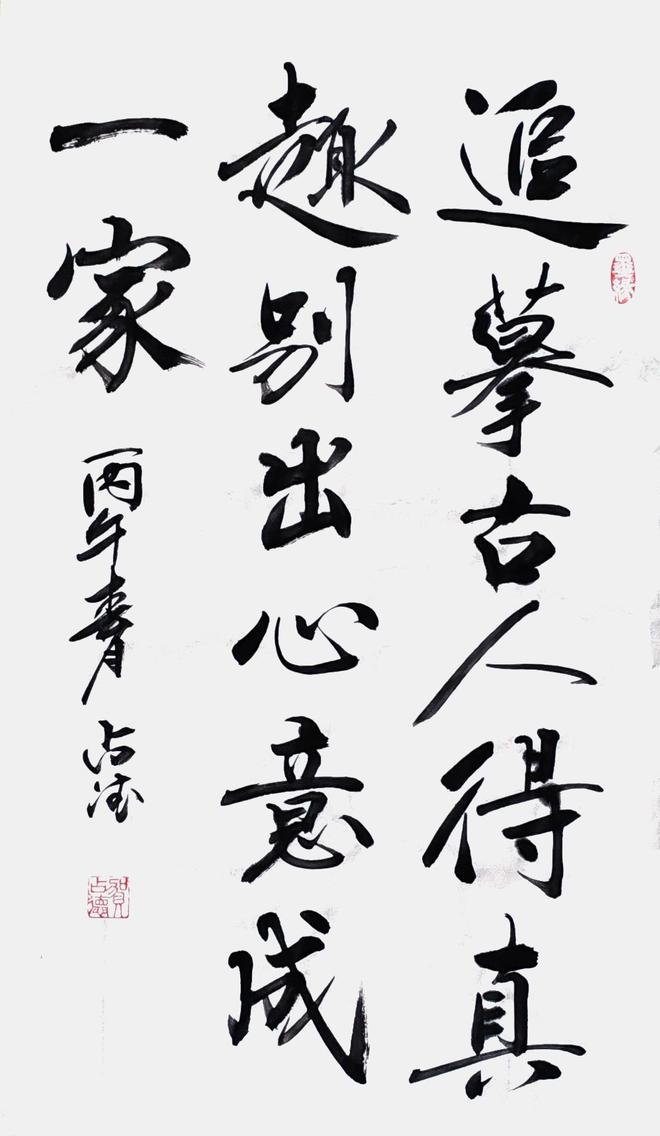 追摹古人得真
墨缘
趣别出心意成
一家
丙午春月 占德
賀占德